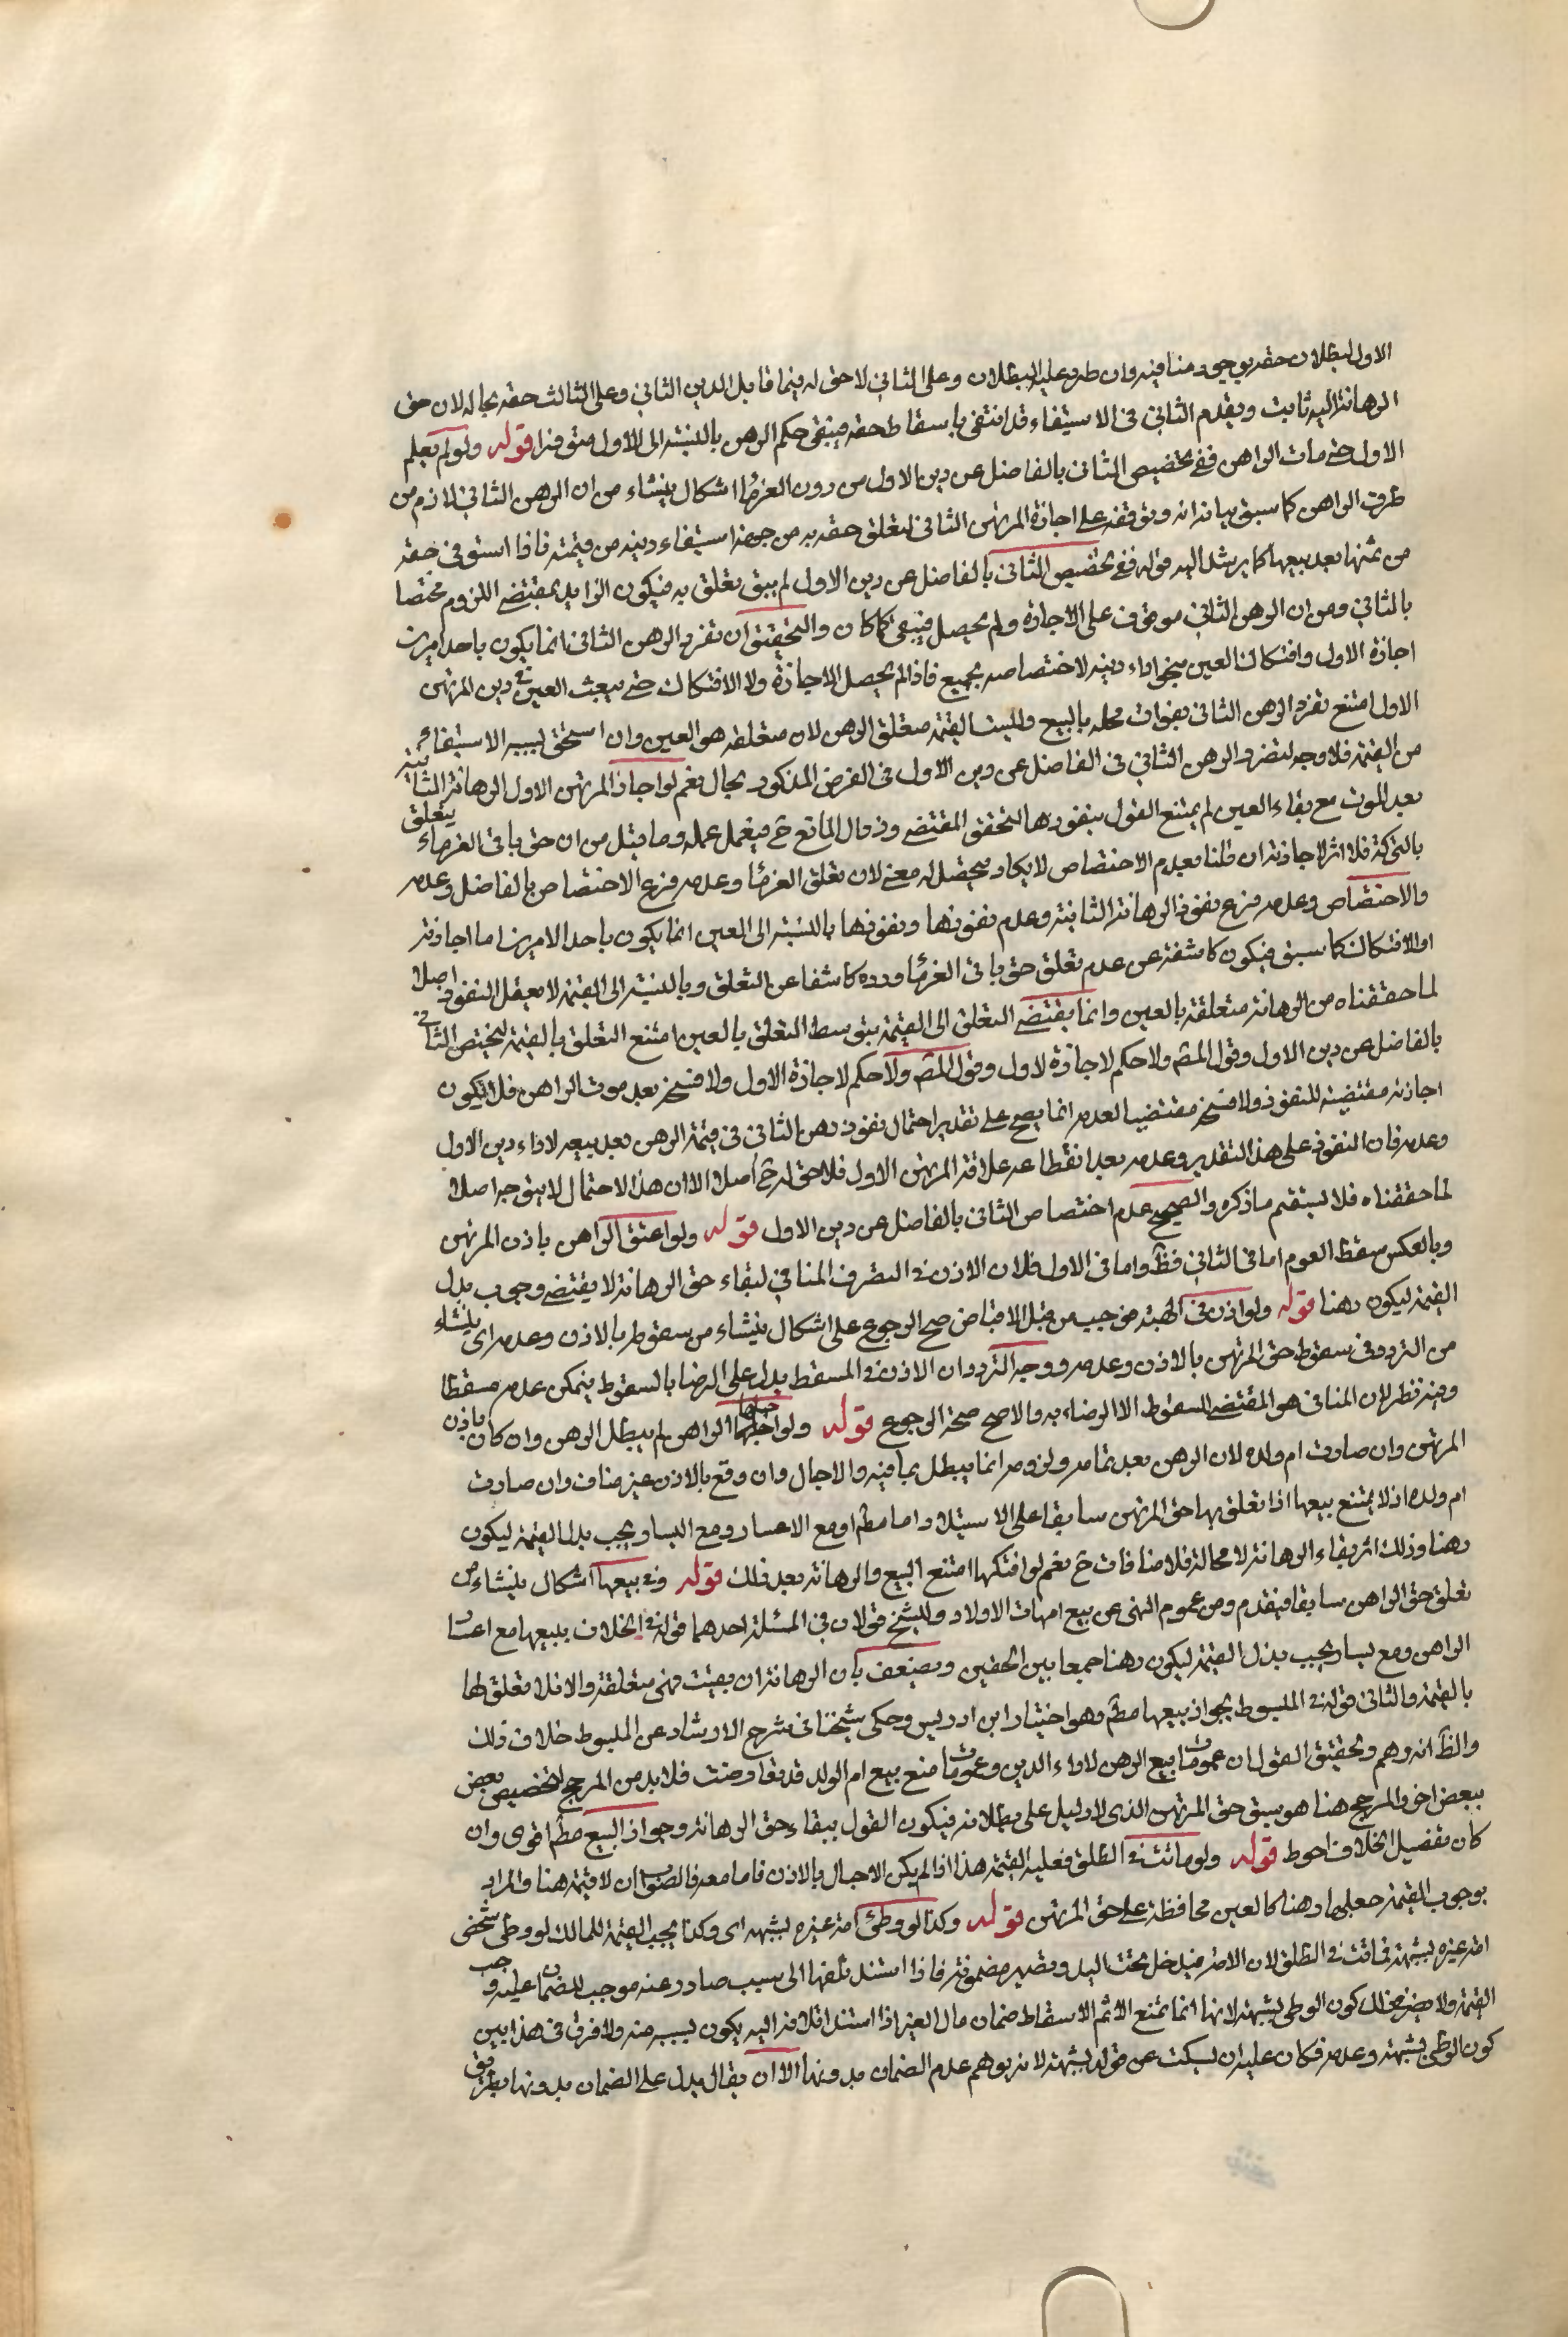 الاول لبطلان حقه بوجود منافيه وان طرء عليه البطلان وعلى الثاني لا حق له فيما قابل الدين الثاني وعلى الثالث حقه بحاله لان حق
الرهانة اليه ثابت ويقدم الثاني في الاستيفاء قد انتفى باسقاط حقه فيبقى حكم الرهن بالنسبة الى الاول متوفرا قوله ولو لم يعلم
الاول حتى مات الراهن ففي تخصيص الثاني بالفاضل عن دين الاول من دون الغرماء اشكال ينشاء من ان الرهن الثاني لازم من
طرف الراهن كما سبق بيانه انه وتوقفه على اجازة المرتهن الثاني لتعلق حقه به من جهة استيفاء دينه من قيمته فاذا استوفى حقه
من ثمنها بعد بيعها كما يرشد اليه قوله ففي تخصيص الثاني بالفاضل عن دين الاول لم يبق تعلق به فيكون الزايد بمقتضى اللزوم مختصا
بالثاني ومن ان الرهن الثاني موقوف على الاجازة ولم يحصل فيبقى كما كان والتحقيق ان تفرد الرهن الثاني انما يكون باحد امرين
اجازة الاول وافتكاك العين بنحو اداء دينه لاختصاصه بجميع فاذا لم يحصل الاجازة ولا الافتكاك حتى بيعت العين في دين المرتهن
الاول امتنع تفرد الرهن الثاني بفوات محله بالبيع وليست القيمة متعلق الرهن لان متعلقه هو العين وان استحق لسببه الاستيفاء
من القيمة فلا وجه لتفرد الرهن الثاني في الفاضل عن دين الاول في الفرض المذكور بحال نعم لو اجاز المرتهن الاول الرهانة الثانية
بعد الموت مع بقاء العين لم يمتنع القول بنفوذها لتحقق المقتضي وزوال المانع ح فيعمل عمله وما قيل من ان حق باقي الغرماء يتعلق
بالتركة فلا اثر لاجازته ان قلنا بعدم الاختصاص لا يكاد يحصل له معنى لان تعلق الغرماء وعدمه فرع الاختصاص بالفاضل وعدمه
والاختصاص وعدمه فرع نفوذ الرهانة الثانية وعدم نفوذها ونفوذها بالنسبة الى العين انما يكون باحد الامرين اما اجازته
او الافتكاك كما سبق فيكون كاشفة عن عدم تعلق حق باقي الغرماء ورده كاشفا عن التعلق وبالنسبة الى القيمة لا يعقل النفوذ اصلا
لما حققناه من الرهانة متعلقة بالعين وانما يقتضي التعلق الى القيمة بتوسط التعلق بالعين امتنع التعلق بالقيمة ليختص الثاني
بالفاضل عن دين الاول وقول المصـ ولا حكم لاجازة لاول وقول المصـ ولا حكم لاجازة الاول ولا فسخه بعد موت الراهن فلا يكون
اجازته مقتضية للنفوذ ولا فسخه مقتضيا لعدمه انما يصح على تقدير احتمال نفوذ رهن الثاني في قيمة الرهن بعد بيعه لاداء دين الاول
وعدمه فان النفوذ على هذا التقدير وعدمه بعد انقطاع علاقة المرتهن الاول فلا حق له ح اصلا الا ان هذا الاحتمال لا يتوجه اصلا
لما حققناه فلا يستقيم ما ذكره والصحيح عدم اختصاص الثاني بالفاضل عن دين الاول قوله ولو اعتق الراهن باذن المرتهن
وبالعكس سقط العوم اما في الثاني فظ واما في الاول فلان الاذن في التصرف المنافي لبقاء حق الرهانة لا يقتضي وجوب بدل
القيمة ليكون رهنا قوله ولو اذن في الهبة من قبل الاقباض صح الرجوع على اشكال ينشاء من سقوطه بالاذن وعدمه اى ينشاء
من التردد في سقوط حق المرتهن بالاذن وعدمه ووجه التردد ان الاذن في المسقط يدل على الرضا بالسقوط فيمكن عدمه مسقطا
وفيه نظر لان المنافي هو المقتضي للسقوط الا الرضاء به والاصح صحة الرجوع قوله ولو احبلها الراهن لم يبطل الرهن وان كان باذن
المرتهن وان صارت ام ولده لان الرهن بعد تمامه ولزومه انما يبطل بمنافيه والاحبال وان وقع بالاذن غير مناف وان صارت
ام ولده اذ لا يمتنع بيعها اذا تعلق بها حق المرتهن سابقا على الاستيلاد اما مطم او مع الاعسار ومع اليسار يجب بدل القيمة ليكون
رهنا وذلك اثر بقاء الرهانة لا محالة فلا منافات ح نعم لو افتكها امتنع البيع والرهانة بعد ذلك قوله وفي بيعها اشكال ينشاء من
تعلق حق الراهن سابقا فيقدم ومن عموم النهى عن بيع امهات الاولاد وللشيخ قولان في المسئلة احدهما قوله في الخلاف ببيعها مع اعسار
الراهن ومع يساره يجب بذل القيمة ليكون رهنا جمعا بين الحقين ويضعف بان الرهانة ان بقيت فهى متعلقة والا فلا تعلق لها
بالقيمة والثاني قوله في المبسوط بجواز بيعها مطم وهو اختيار ابن ادريس وحكى شيخنا في شرح الارشاد عن المبسوط خلاف ذلك
والظ انه وهم وتحقيق القول ان عمومات بيع الرهن لاداء الدين وعمومات منع بيع ام الولد قد تعارضت فلا بد من المرجح لتخصيص بعض
ببعض اخر والمرجح هنا هو سبق حق المرتهن الذى لا دليل على بطلانه فيكون القول ببقاء حق الرهانة وجواز البيع مطم اقوى وان
كان تفصيل الخلاف احوط قوله ولو ماتت في الطلق فعليه القيمة هذا اذا لم يكن الاحبال بالاذن فاما معه فالصواب ان لا قيمة هنا والمراد
بوجوب القيمة جعلها رهنا كالعين محافظة على حق المرتهن قوله وكذا لو وطئ امة غيره لشبهة اى وكذا يجب القيمة للمالك لو وطئ شخص
امة غيره بشبهة فماتت في الطلق لان الامة يدخل تحت اليد وتصير مضمونة فاذا استند تلفها الى سبب صادر عنه موجب للضمان عليه وجب
القيمة ولا يضر في ذلك كون الوطى بشبهة لانها انما تمنع الاثم الاسقاط ضمان مال الغير اذا استند اتلافه اليه يكون لسببه منه ولا فرق في هذا بين
كون الوطى بشبهة وعدمه فكان عليه ان يسكت عن قوله بشبهة لانه يوهم عدم الضمان بدونها الا ان يقال يدل على الضمان بدونها بطريق